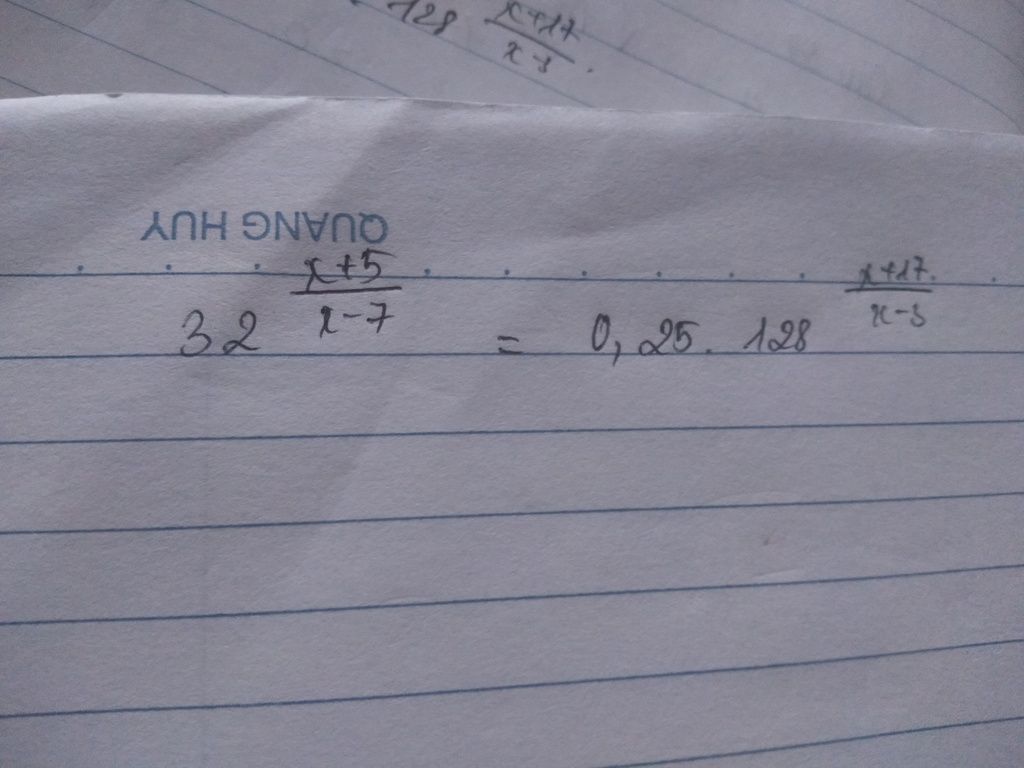 128^{\frac{x+17}{x-3}}.
QUANG HUY
32^{\frac{x+5}{x-7}} = 0,25. 128^{\frac{x+17}{x-3}}